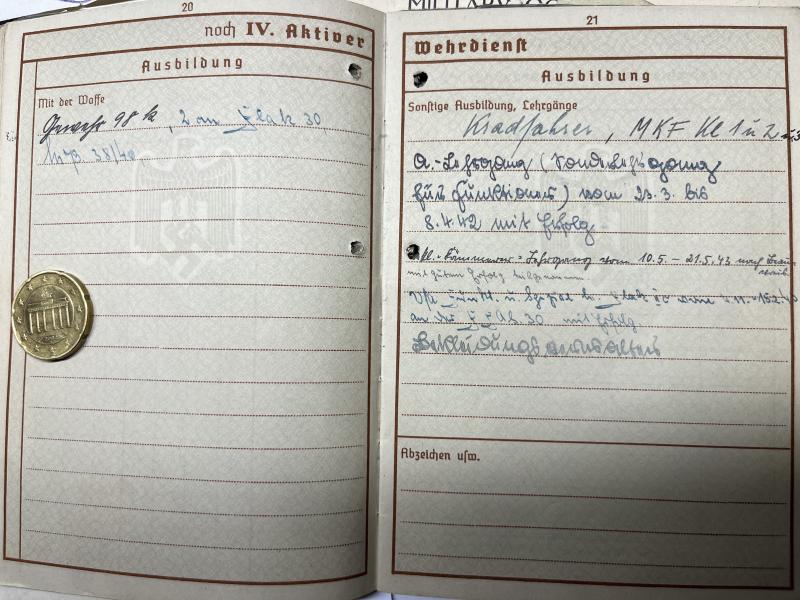 20
noch IV. Aktiver
Ausbildung
Mit der Waffe
Gewehr 98 k, 2 cm Flak 30,
38/40
21
Wehrdienst
Ausbildung
Sonstige Ausbildung, Lehrgänge
Kradfahrer, MKF Kl 1 u 2 u 3
A.-Lehrgang (Sonderlehrgang
für Funktioner) vom 23.3. bis
8.4.42 mit Erfolg
Lehrgang vom 10.5. - 21.5.43 nach
mit gutem Erfolg teilgenommen
u. vom 4.11. -
an der 30 mit Erfolg
Bekleidungsverwalter
Abzeichen usw.